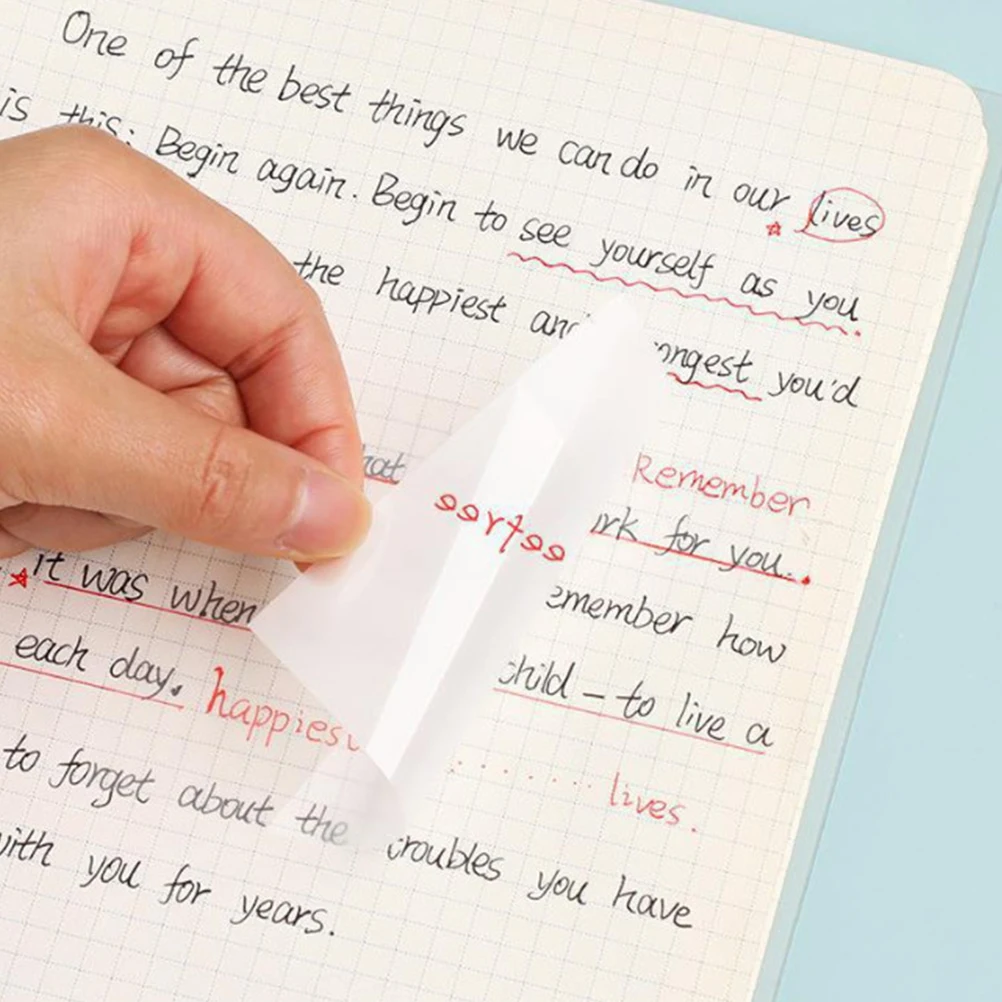 One of the best things we can do in our lives
is this: Begin again. Begin to see yourself as you
the happiest and ongest you'd
hat Remember
rk for you.
it was when emember how
each day. happies child – to live a
lives.
to forget about the troubles you have
with you for years.